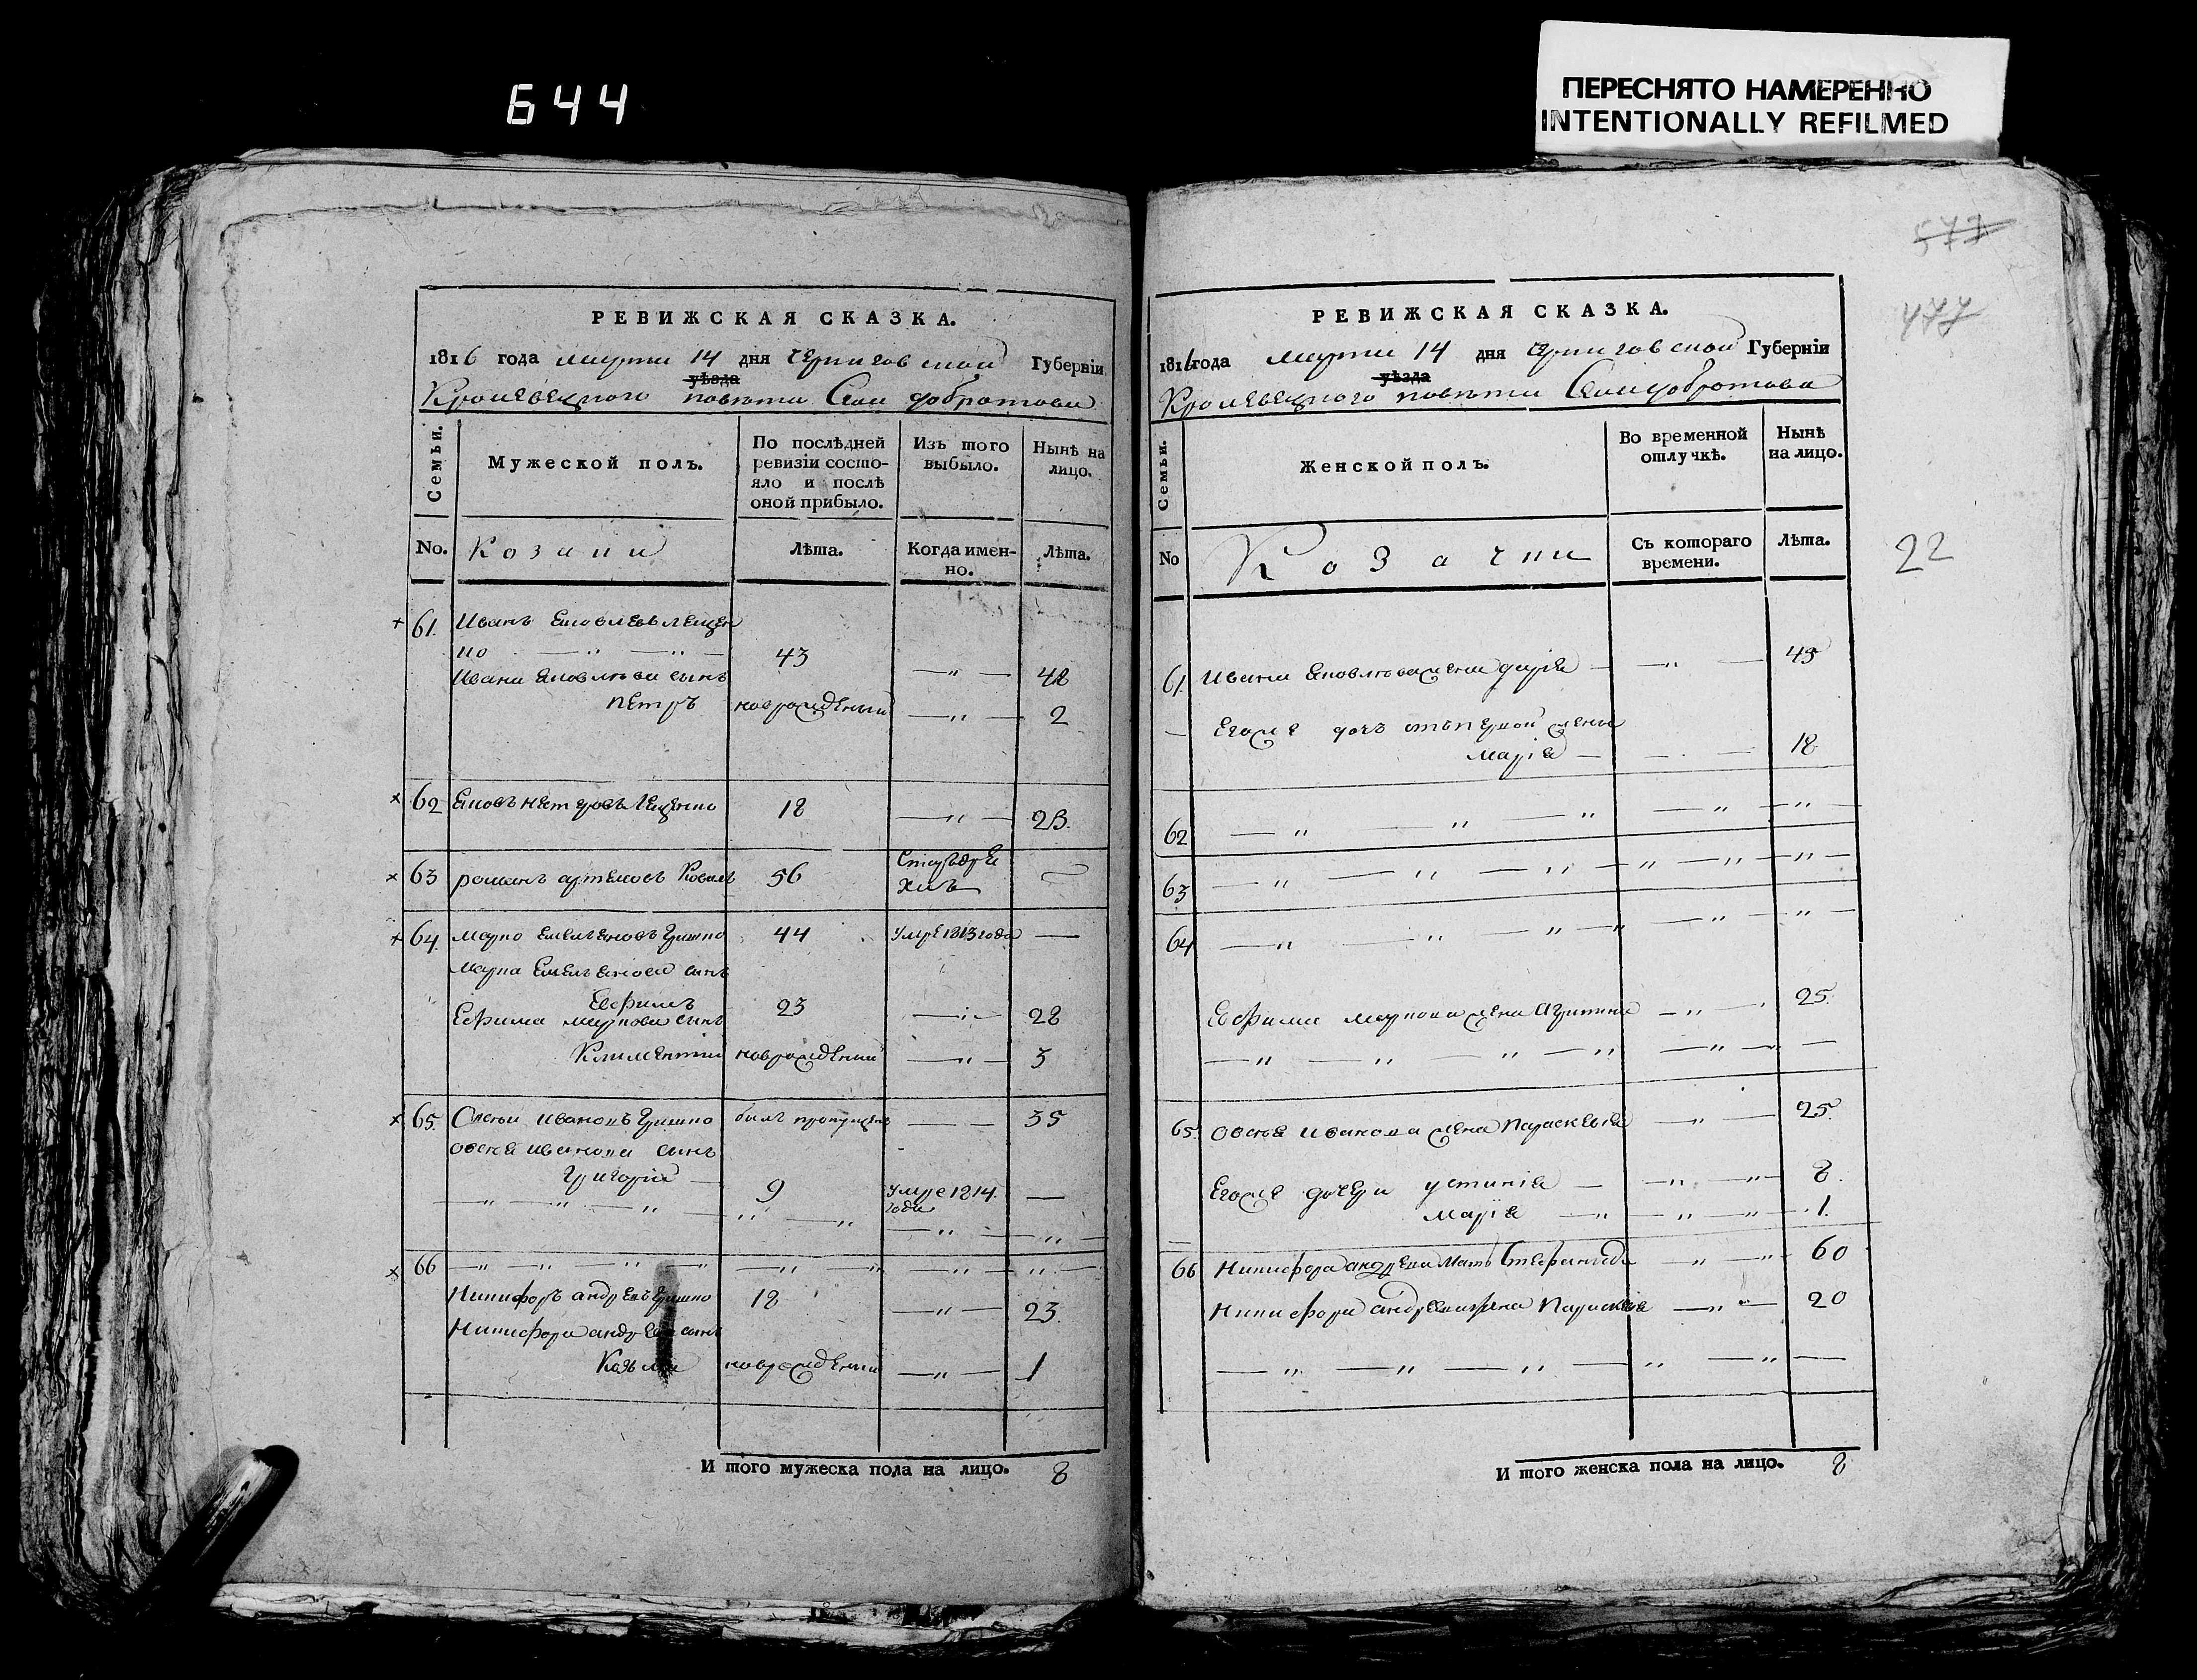 644
ПЕРЕСНЯТО НАМЕРЕННО
INTENTIONALLY REFILMED
РЕВИЖСКАЯ СКАЗКА.
1816 года марта 14 дня Черниговской Губерніи
уѣзда
Кролевецкого повѣта Села добротова
Семьи.
Мужеской полъ.
По послѣдней ревизіи состо-
яло и послѣ
оной прибыло.
Изъ того
выбыло.
Нынѣ на
лицо.
No.
Козаки
Лѣта.
Когда имен-
но.
Лѣта.
61. Иванъ Яковлевъ Лещен
ко 43 48
Ивана Яковлева сынъ
петръ новорожденный 2
62 Яковъ петровъ Лещенко 18 23.
63 романъ артемовъ Коваль 56
64 марко Емельяновъ Гришко 44 умре 1813 года
марка Емельянова сынъ
Евфимъ 23 28
Ефима маркова сынъ
Климентий новорожденный 3
65. Овсѣй Ивановъ Гришко былъ пропущенъ 35
овсѣя иванова сынъ
Григорій 9 умре 1814.
года
66
Никифоръ андреевъ Гришко 18 23.
Никифора андреева сынъ
Козьма новорожденный 1
И того мужеска пола на лицо. 8
577
477
22
РЕВИЖСКАЯ СКАЗКА.
1816 года марта 14 дня Черниговской Губерніи
уѣзда
Кролевецкого повѣта Села добротова
Семьи.
Женской полъ.
Во временной
отлучкѣ.
Нынѣ
на лицо.
No
Козачки
Съ котораго
времени.
Лѣта.
61. Ивана Яковлева жена дарія 45
Егоже дочь отъ первой жены
марія 18
62
63
64
Евфима маркова жена Агрипина 25
65. овсѣя иванова жена Параскевія 25.
Егоже дочери устинія 8.
марія 1.
66 Никифора андреева мать Стефанида 60
Никифора андреева жена Параскевія 20
И того женска пола на лицо. 8